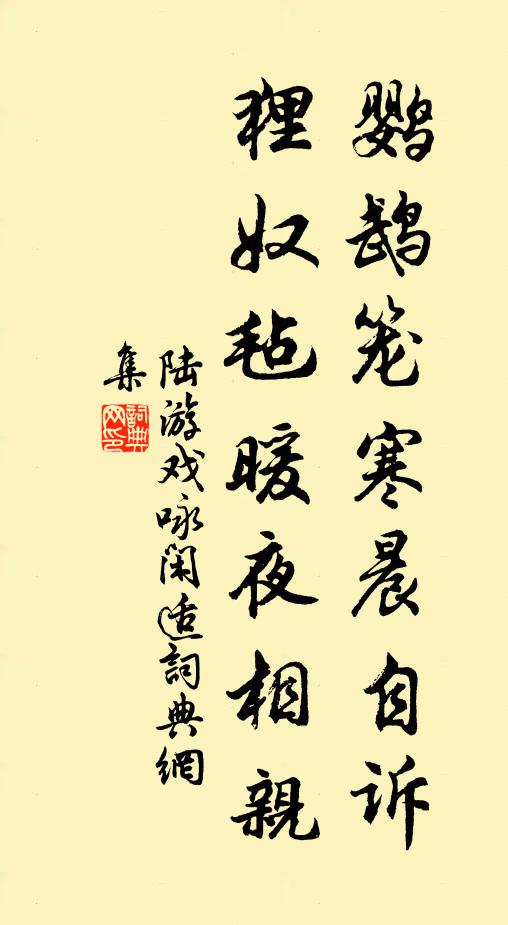 鹦鹉笼寒晨自诉
狸奴毡暖夜相親
陆游戏咏闲适詞典網
集
詞典网印